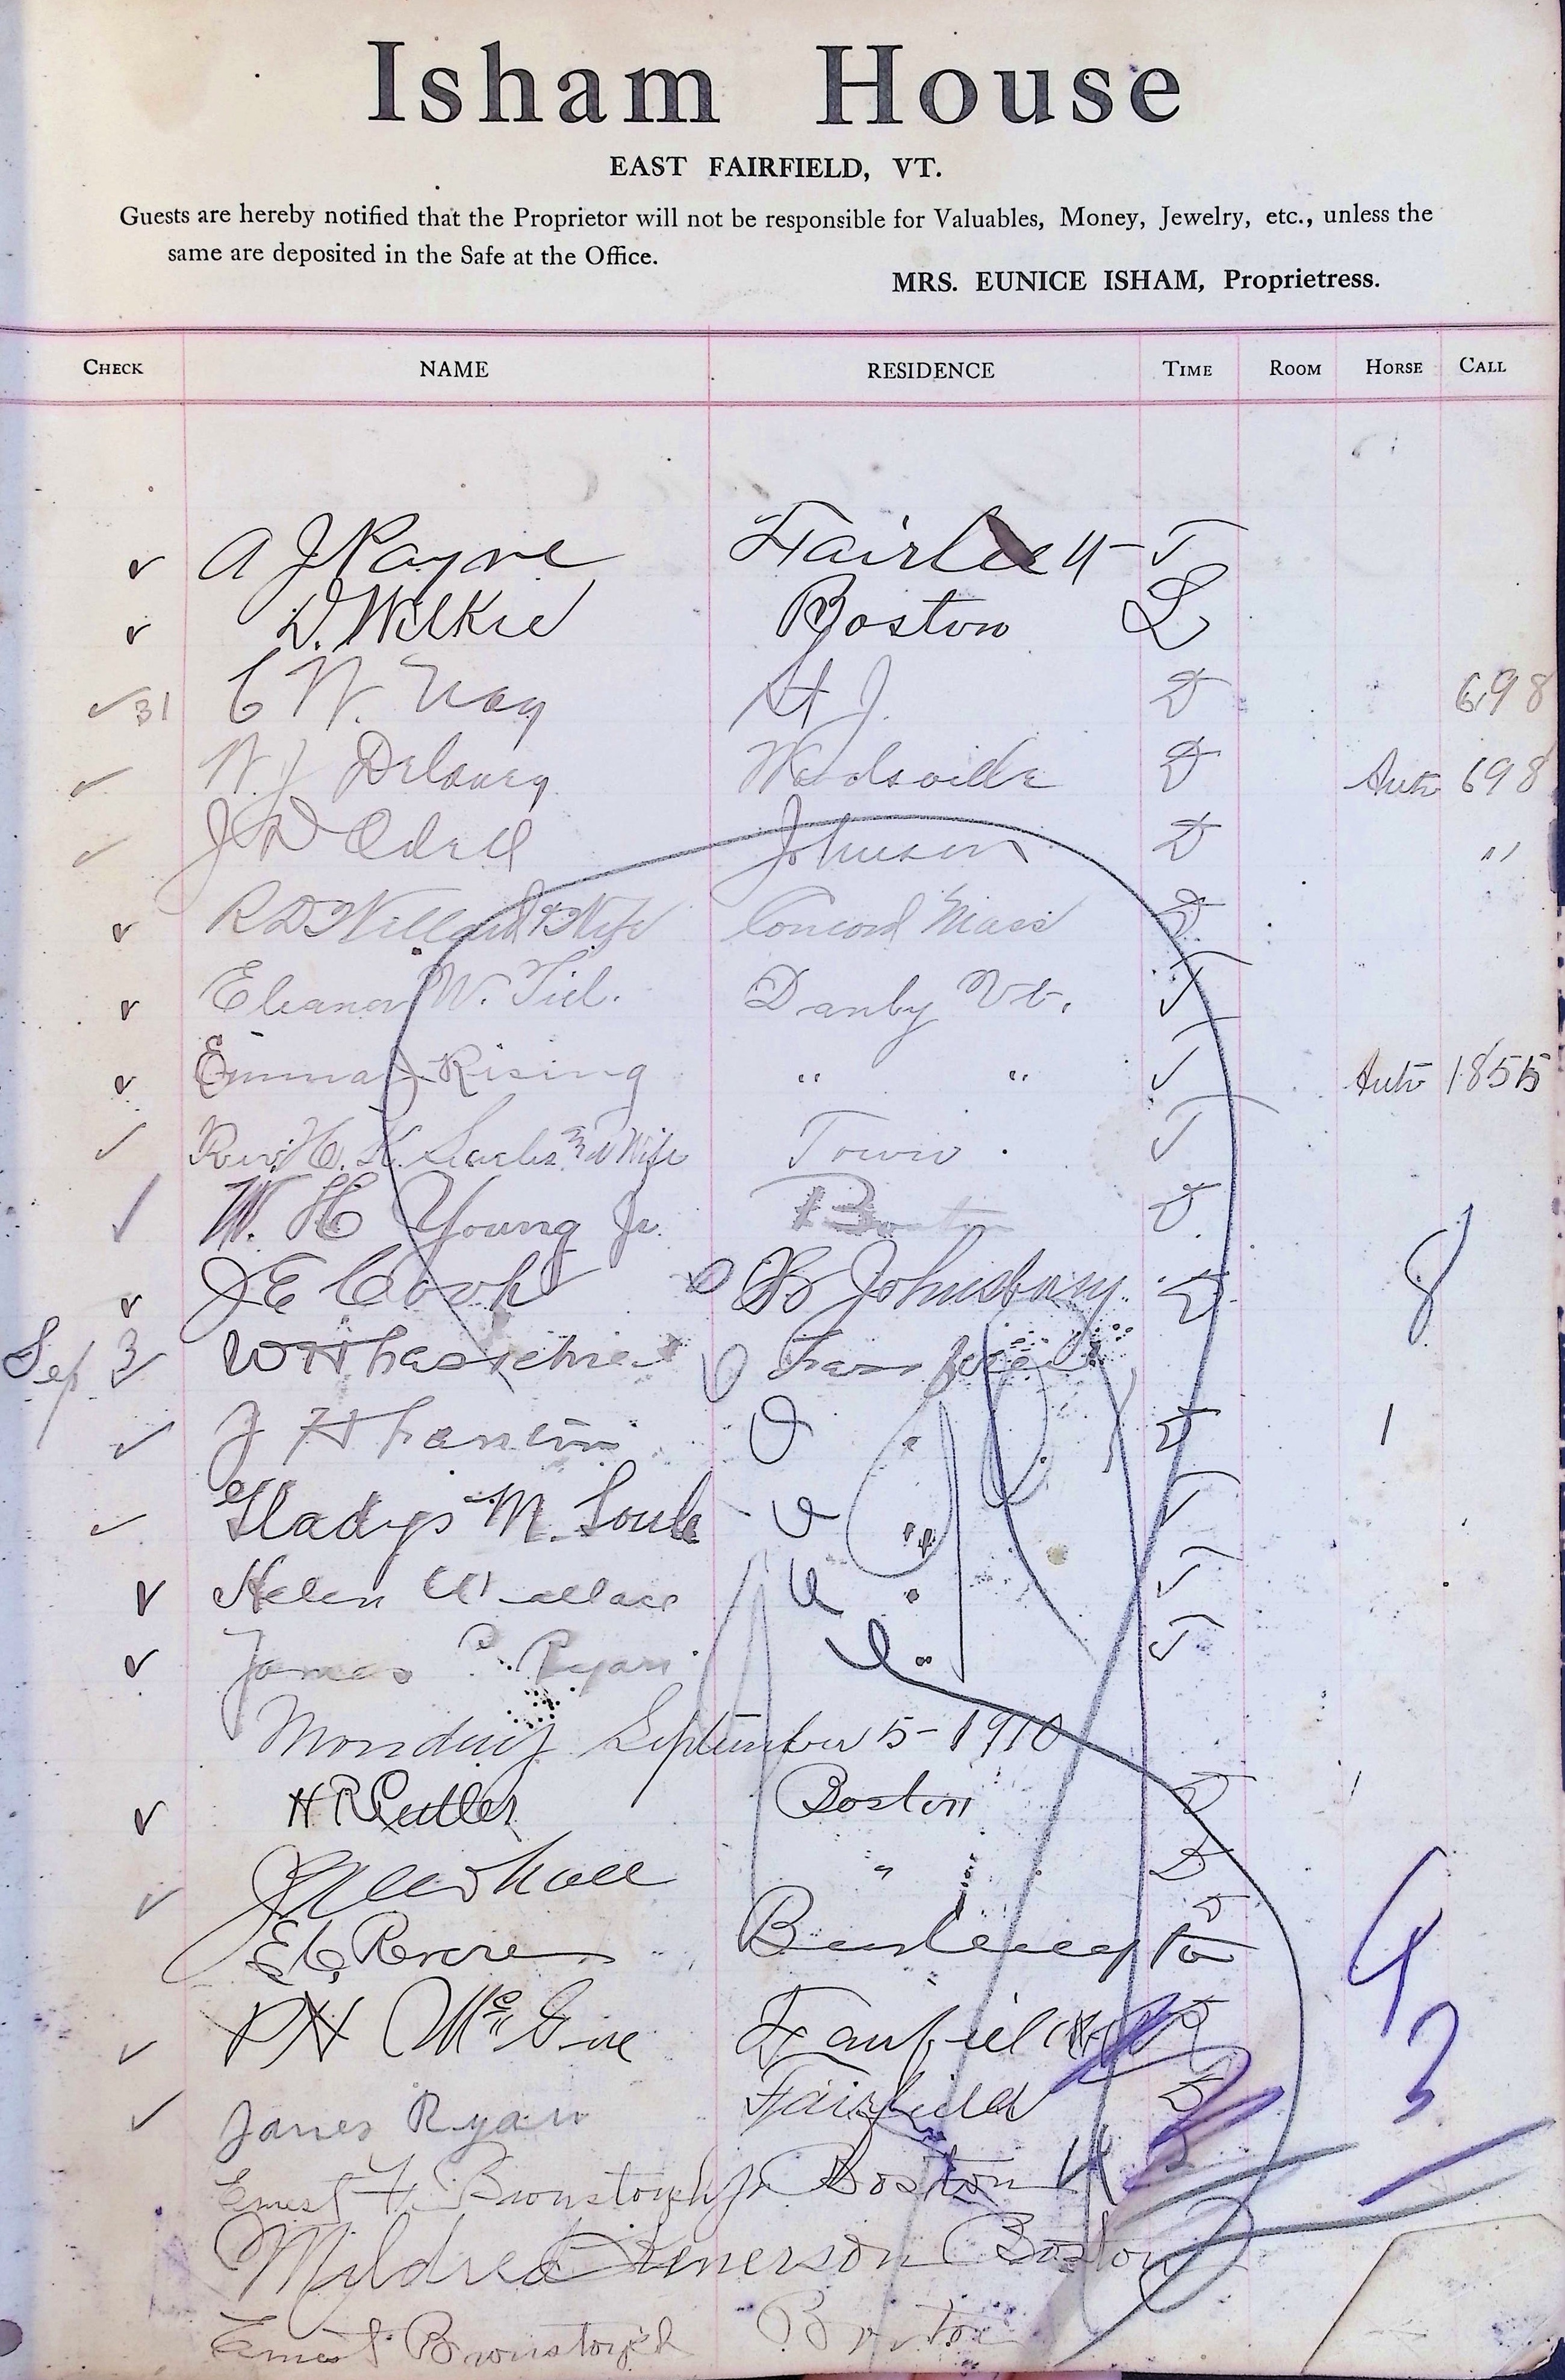 Isham House
EAST FAIRFIELD, VT.
Guests are hereby notified that the Proprietor will not be responsible for Valuables, Money, Jewelry, etc., unless the
same are deposited in the Safe at the Office.
MRS. EUNICE ISHAM, Proprietress.
CHECK NAME RESIDENCE TIME ROOM HORSE CALL
A J Payne Fairlee T
D. Wilkie Boston L
31 C W. Nay St J. D 698
W J Delaney Woodsville D Auto 698
J D Odell Johnson D "
R D Willard & Wife Concord Mass D
Eleanor W. Tiel. Danby Vt. T
Emma J Rising " " Auto 1855
Rev. H. K. and Wife Town. T
W. H Young Jr. Boston D.
J E Cook St Johnsbury. D 8
Sep 3 W H
J H D 1
Gladys M. Soule "
Helen Wallace "
James Ryan "
Monday September 5-1910
H R Cutler Boston D
J Newhall " D
E C Revere Burlington D
P H McGine Fairfield D
James Ryan Fairfield D
Ernest F. Boston
Mildred Emerson Boston
Ernest Boston
9
3